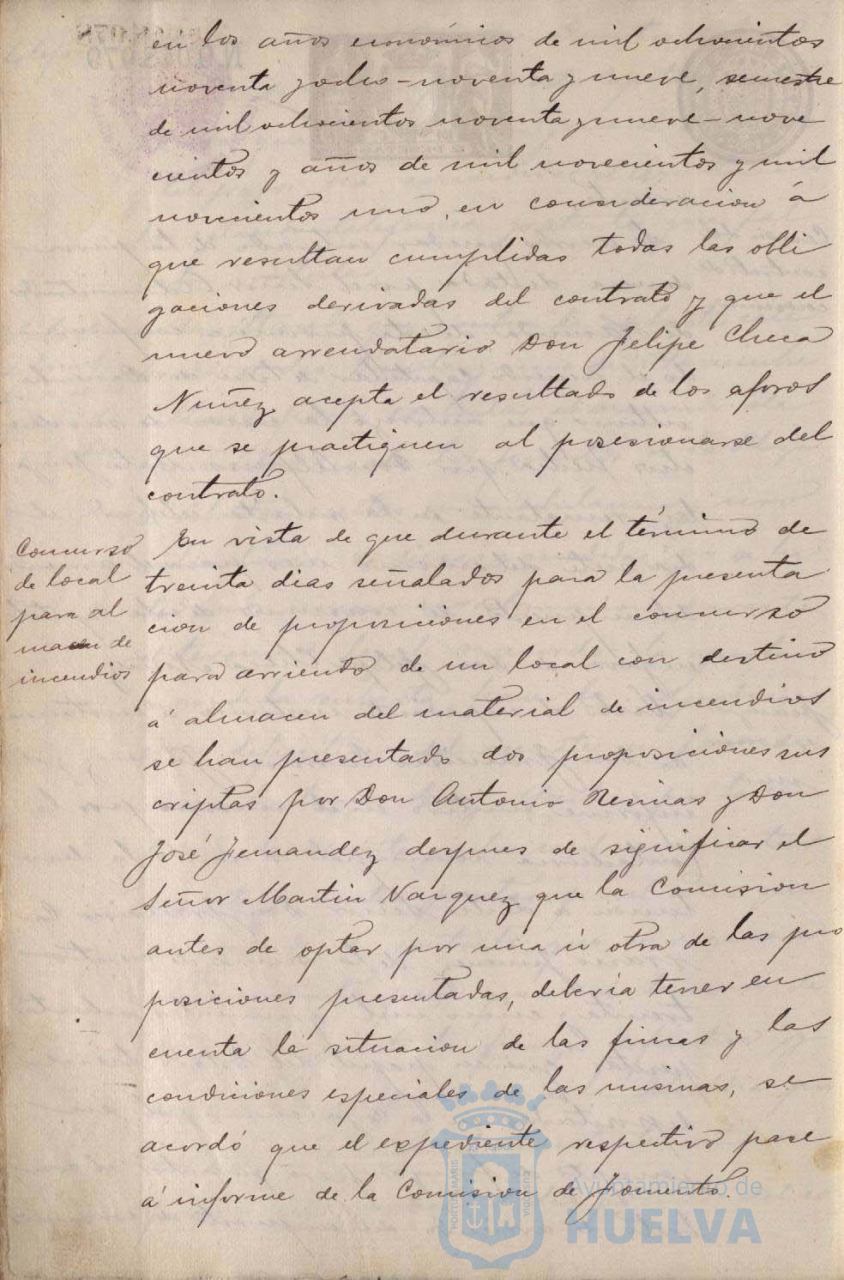 en los años económicos de mil ochocientos
noventa y ocho-noventa y nueve, semestre
de mil ochocientos noventa y nueve-nove
cientos y años de mil novecientos y mil
novecientos uno, en consideracion á
que resultan cumplidas todas las obli
gaciones derivadas del contrato y que el
nuevo arrendatario Don Felipe Checa
Nuñez acepta el resultado de los aforos
que se practiquen al posesionarse del
contrato.
Concurso
de local
para al
macen de
incendios
En vista de que durante el término de
treinta dias señalados para la presenta
cion de proposiciones en el concurso
para arriendo de un local con destino
á almacen del material de incendios
se han presentado dos proposiciones sus
criptas por Don Antonio Resinas y Don
José Fernandez despues de significar el
Señor Martin Vazquez que la Comision
antes de optar por una ú otra de las pro
posiciones presentadas, debería tener en
cuenta la situacion de las fincas y las
condiciones especiales de las mismas, se
acordó que el expediente respectivo pase
á informe de la Comision de Fomento
Ayuntamiento de
HUELVA